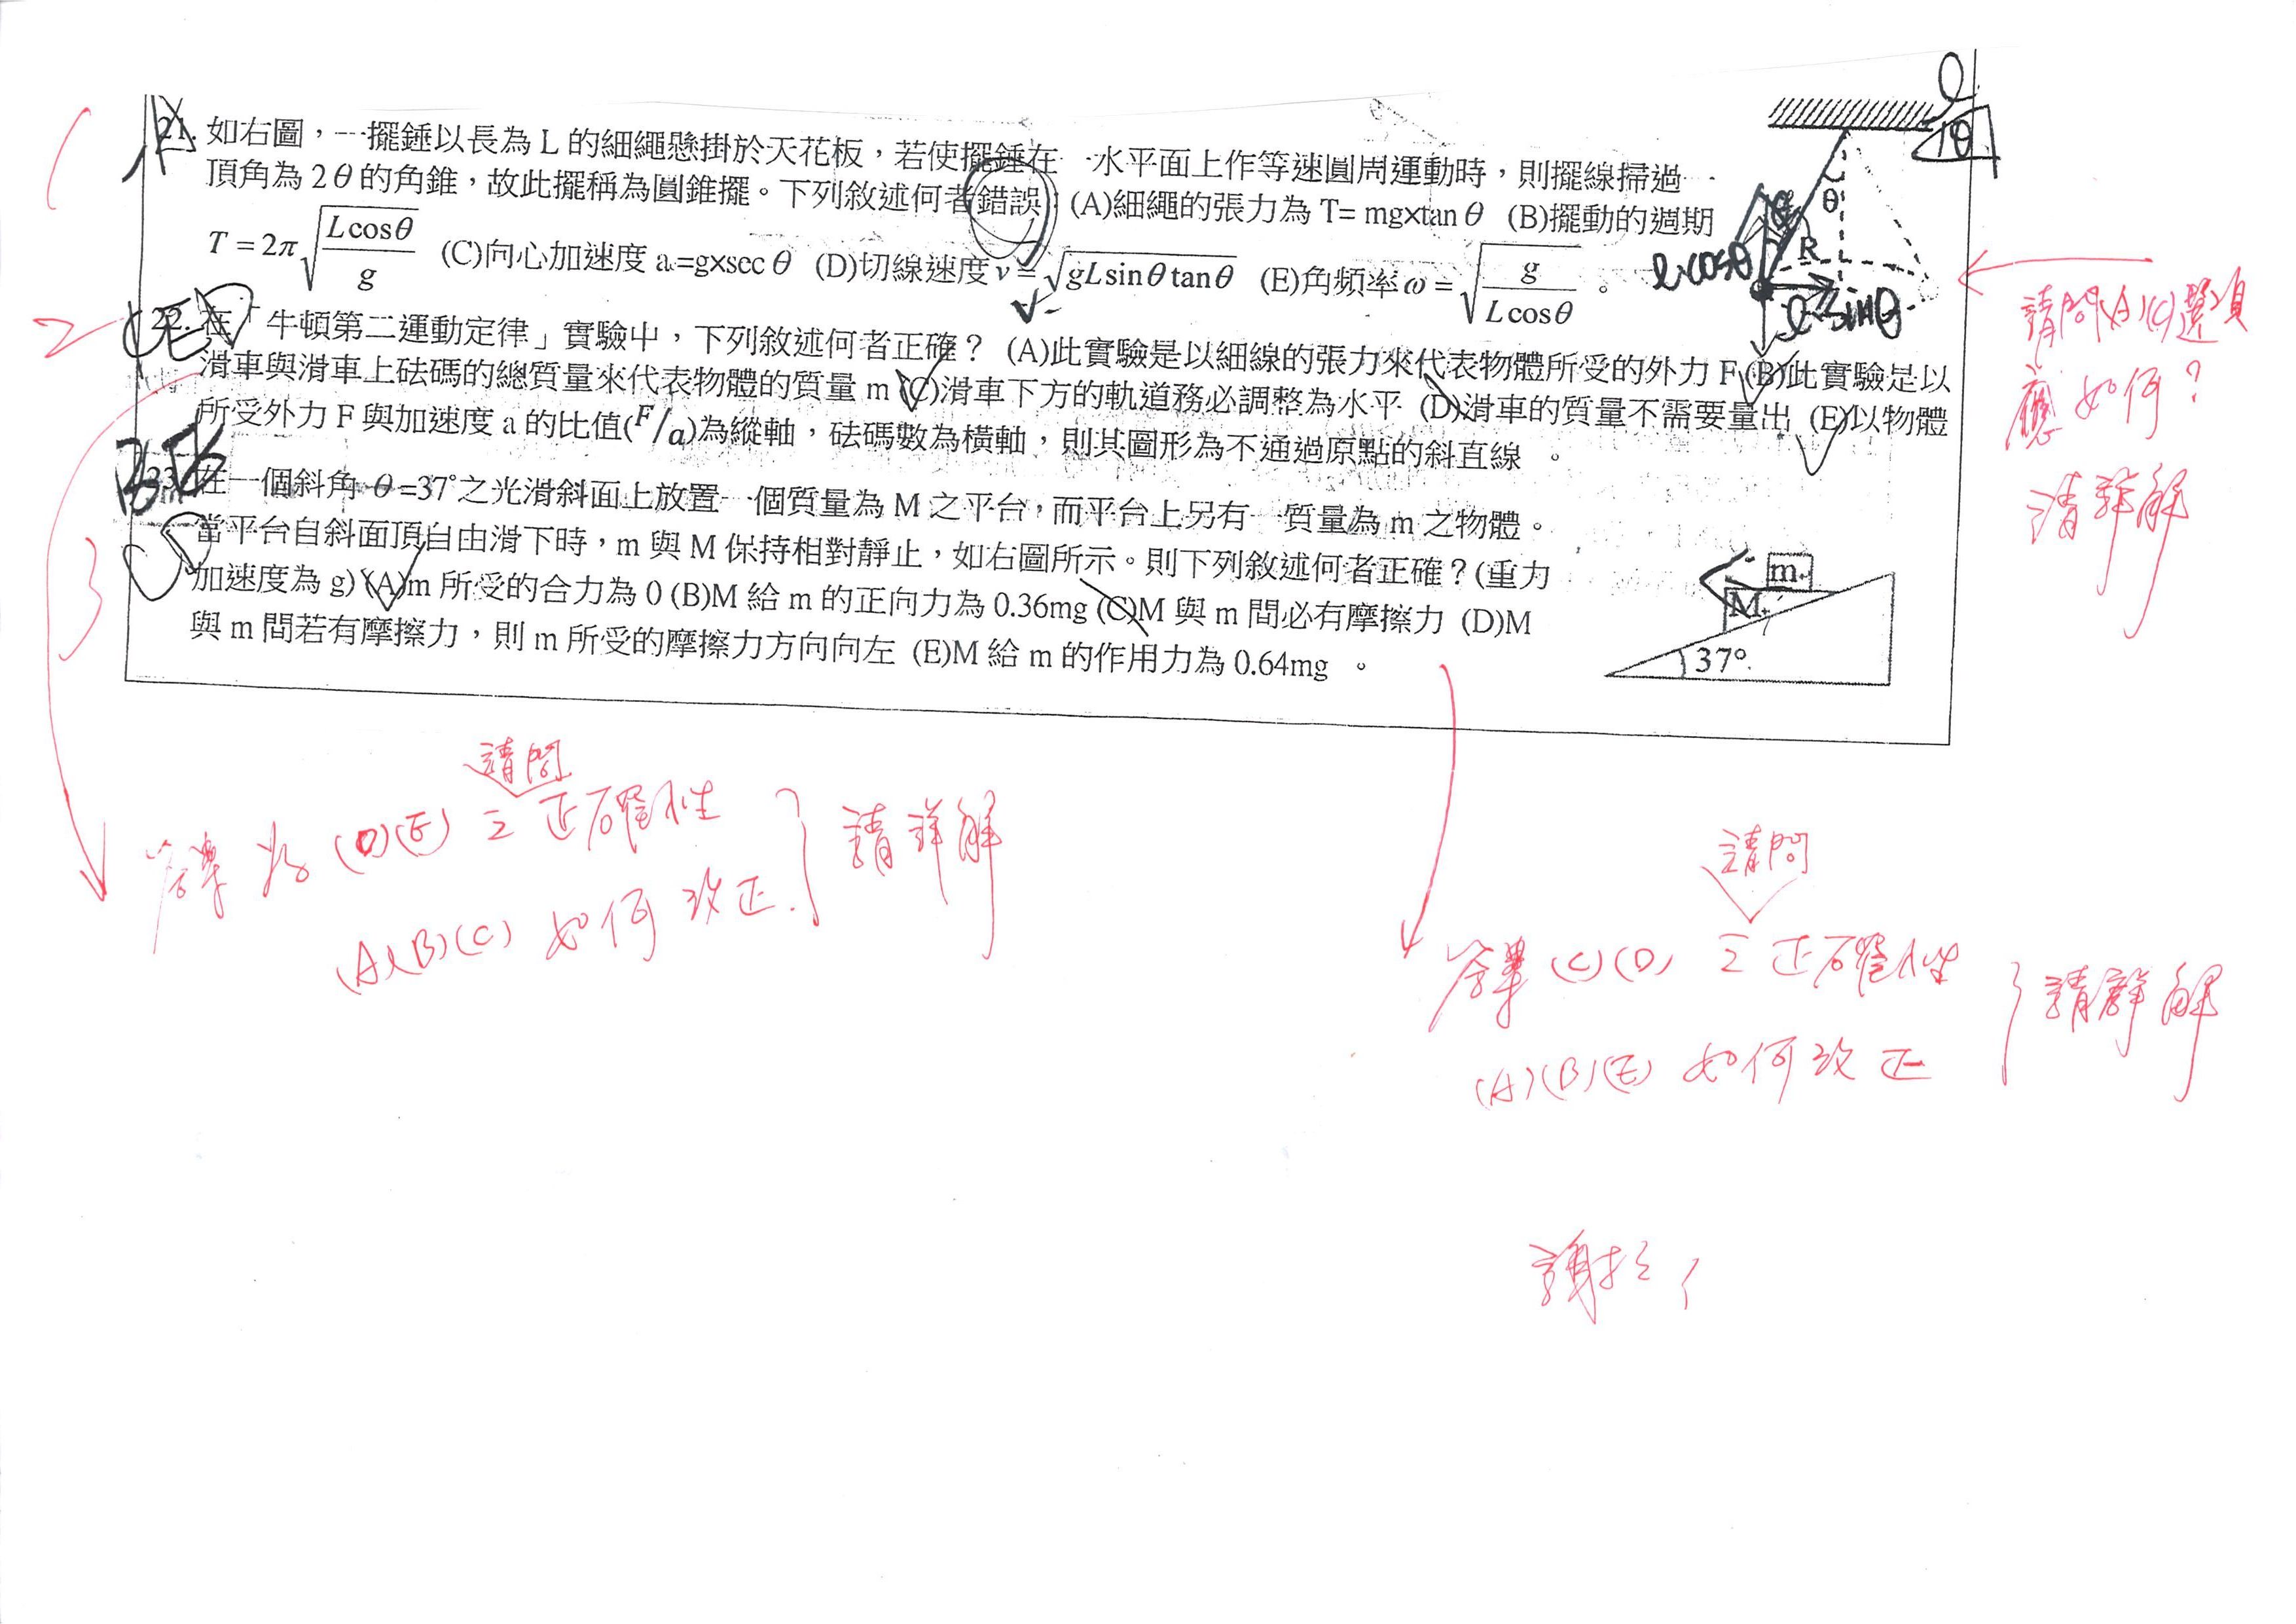 21. 如右圖，一擺錘以長為 L 的細繩懸掛於天花板，若使擺錘在一水平面上作等速圓周運動時，則擺線掃過一
頂角為 2θ 的角錐，故此擺稱為圓錐擺。下列敘述何者錯誤：(A)細繩的張力為 T= mg×tan θ (B)擺動的週期
T = 2π√(Lcosθ/g) (C)向心加速度 a=g×sec θ (D)切線速度 v = √(gLsinθtanθ) (E)角頻率 ω = √(g/(Lcosθ)) 。
22. 在「牛頓第二運動定律」實驗中，下列敘述何者正確？ (A)此實驗是以細線的張力來代表物體所受的外力 F (B)此實驗是以
滑車與滑車上砝碼的總質量來代表物體的質量 m (C)滑車下方的軌道務必調整為水平 (D)滑車的質量不需要量出 (E)以物體
所受外力 F 與加速度 a 的比值(F/a)為縱軸，砝碼數為橫軸，則其圖形為不通過原點的斜直線 。
23. 在一個斜角 θ =37°之光滑斜面上放置一個質量為 M 之平台，而平台上另有一質量為 m 之物體。
當平台自斜面頂自由滑下時，m 與 M 保持相對靜止，如右圖所示。則下列敘述何者正確？(重力
加速度為 g) (A)m 所受的合力為 0 (B)M 給 m 的正向力為 0.36mg (C)M 與 m 間必有摩擦力 (D)M
與 m 間若有摩擦力，則 m 所受的摩擦力方向向左 (E)M 給 m 的作用力為 0.64mg 。
θ
R
ℓcosθ
ℓsinθ
m
M
37°
1
2
3
請問(A)(C)選項
應如何？
請詳解
請問
答案為(D)(E)之正確性
(A)(B)(C)如何改正.
請詳解
請問
答案(C)(D)之正確性
(A)(B)(E)如何改正
請詳解